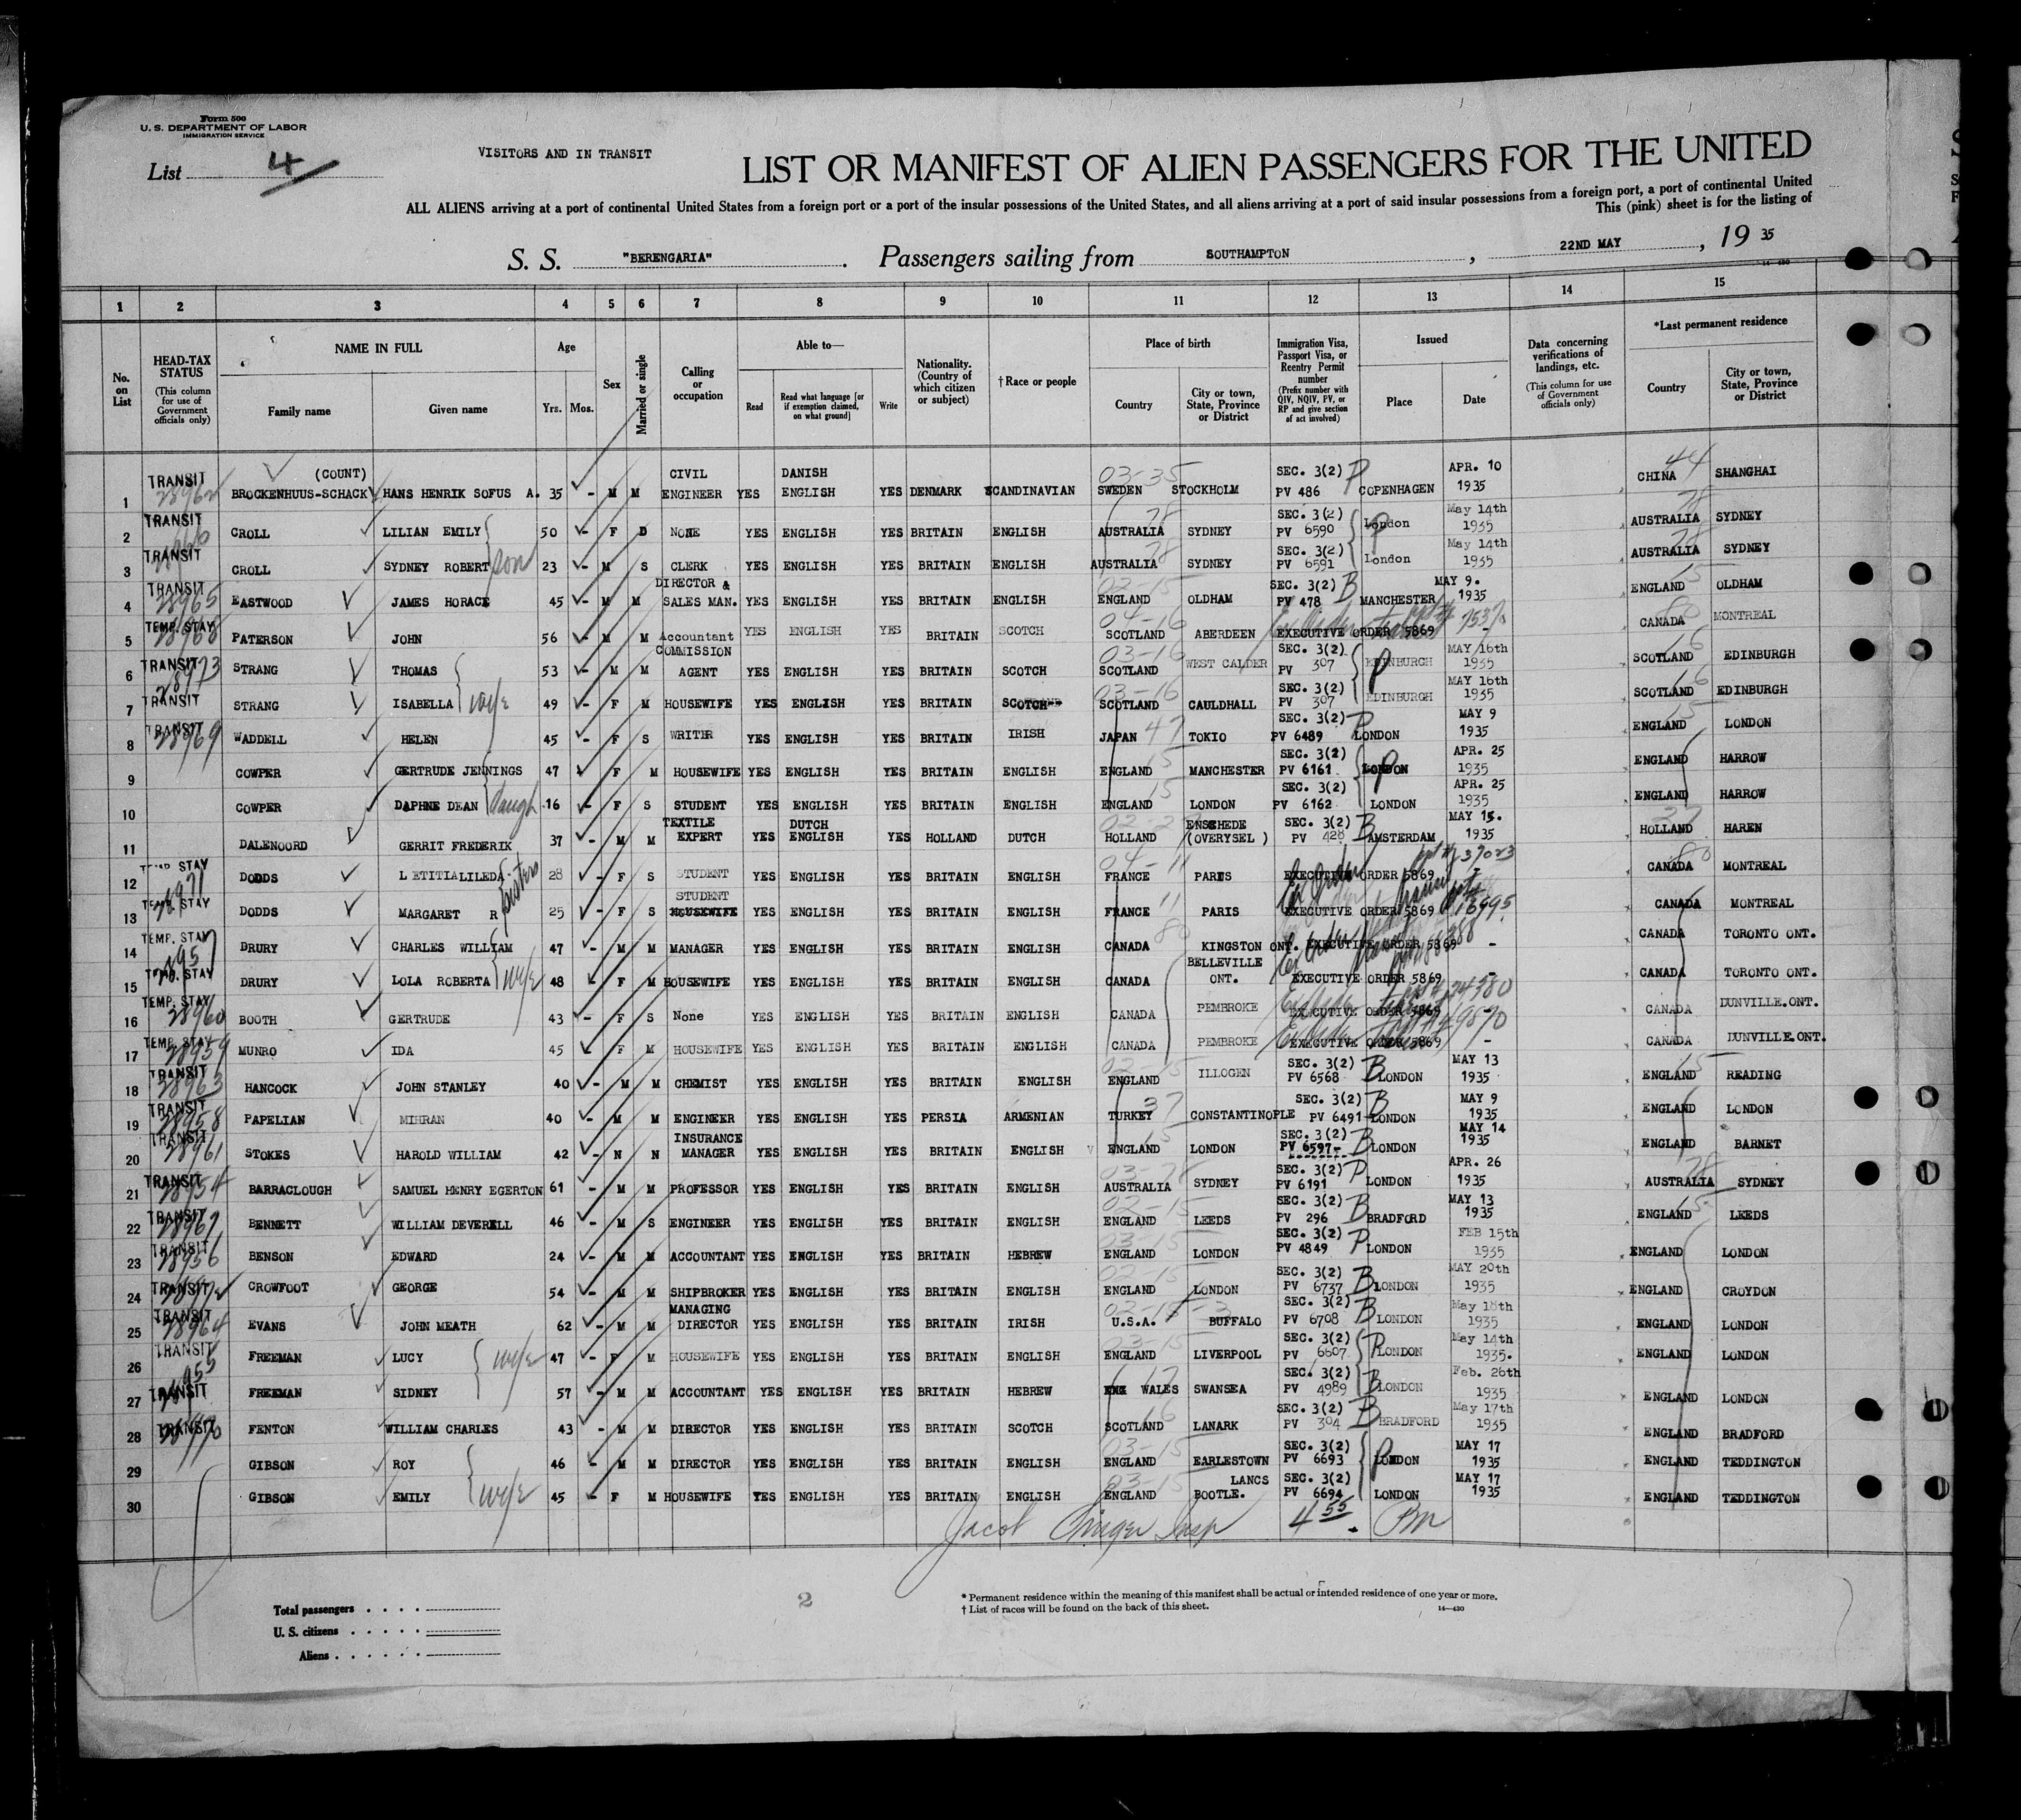 Form 500
U. S. DEPARTMENT OF LABOR
IMMIGRATION SERVICE
List 4
VISITORS AND IN TRANSIT
LIST OR MANIFEST OF ALIEN PASSENGERS FOR THE UNITED
ALL ALIENS arriving at a port of continental United States from a foreign port or a port of the insular possessions of the United States, and all aliens arriving at a port of said insular possessions from a foreign port, a port of continental United
This (pink) sheet is for the listing of
S. S. "BERENGARIA". Passengers sailing from SOUTHAMPTON, 22ND MAY, 19 35
1 2 3 4 5 6 7 8 9 10 11 12 13 14 15
No. on List
HEAD-TAX STATUS (This column for use of Government officials only)
NAME IN FULL Family name Given name
Age Yrs. Mos.
Sex
Married or single
Calling or occupation
Able to— Read Read what language [or if exemption claimed, on what ground] Write
Nationality. (Country of which citizen or subject)
† Race or people
Place of birth Country City or town, State, Province or District
Immigration Visa, Passport Visa, or Reentry Permit number (Prefix number with QIV, NQIV, PV, or RP and give section of act involved)
Issued Place Date
Data concerning verifications of landings, etc. (This column for use of Government officials only)
*Last permanent residence Country City or town, State, Province or District
1 TRANSIT 28962 (COUNT) BROCKENHUUS-SCHACK HANS HENRIK SOFUS A. 35 - M M CIVIL ENGINEER YES DANISH ENGLISH YES DENMARK SCANDINAVIAN 03-35 SWEDEN STOCKHOLM SEC. 3(2) PV 486 P COPENHAGEN APR. 10 1935 CHINA 44 SHANGHAI
2 TRANSIT CROLL LILIAN EMILY 50 - F D NONE YES ENGLISH YES BRITAIN ENGLISH AUSTRALIA 78 SYDNEY SEC. 3(2) PV 6590 P London May 14th 1935 AUSTRALIA 78 SYDNEY
3 TRANSIT CROLL SYDNEY ROBERT son 23 - M S CLERK YES ENGLISH YES BRITAIN ENGLISH AUSTRALIA 78 SYDNEY SEC. 3(2) PV 6591 London May 14th 1935 AUSTRALIA 78 SYDNEY
4 TRANSIT 28965 EASTWOOD JAMES HORACE 45 - M M DIRECTOR & SALES MAN. YES ENGLISH YES BRITAIN ENGLISH 02-15 ENGLAND OLDHAM SEC. 3(2) PV 478 B MANCHESTER MAY 9. 1935 ENGLAND 15 OLDHAM
5 TEMP. STAY 28968 PATERSON JOHN 56 - M M Accountant YES ENGLISH YES BRITAIN SCOTCH 04-16 SCOTLAND ABERDEEN EXECUTIVE ORDER 5869 - CANADA 80 MONTREAL
6 TRANSIT 28973 STRANG THOMAS 53 - M M COMMISSION AGENT YES ENGLISH YES BRITAIN SCOTCH 03-16 SCOTLAND WEST CALDER SEC. 3(2) PV 307 P EDINBURGH MAY 16th 1935 SCOTLAND 16 EDINBURGH
7 TRANSIT STRANG ISABELLA wife 49 - F M HOUSEWIFE YES ENGLISH YES BRITAIN SCOTCH 03-16 SCOTLAND CAULDHALL SEC. 3(2) PV 307 EDINBURGH MAY 16th 1935 SCOTLAND 16 EDINBURGH
8 TRANSIT 28969 WADDELL HELEN 45 - F S WRITER YES ENGLISH YES BRITAIN IRISH JAPAN 47 TOKIO SEC. 3(2) PV 6489 P LONDON MAY 9 1935 ENGLAND 15 LONDON
9 COWPER GERTRUDE JENNINGS 47 F M HOUSEWIFE YES ENGLISH YES BRITAIN ENGLISH ENGLAND 15 MANCHESTER SEC. 3(2) PV 6161 P LONDON APR. 25 1935 ENGLAND HARROW
10 COWPER DAPHNE DEAN daugh 16 - F S STUDENT YES ENGLISH YES BRITAIN ENGLISH ENGLAND 15 LONDON SEC. 3(2) PV 6162 LONDON APR. 25 1935 ENGLAND HARROW
11 DALENOORD GERRIT FREDERIK 37 - M M TEXTILE EXPERT YES DUTCH ENGLISH YES HOLLAND DUTCH HOLLAND ENSCHEDE (OVERYSEL) SEC. 3(2) PV 428 B AMSTERDAM MAY 15. 1935 HOLLAND 37 HAREN
12 TEMP STAY DODDS LETITIA LILEDA 28 - F S STUDENT YES ENGLISH YES BRITAIN ENGLISH 04-11 FRANCE PARIS EXECUTIVE ORDER 5869 - CANADA 80 MONTREAL
13 TEMP STAY DODDS MARGARET R sisters 25 - F S STUDENT HOUSEWIFE YES ENGLISH YES BRITAIN ENGLISH FRANCE 11 PARIS EXECUTIVE ORDER 5869 CANADA MONTREAL
14 TEMP. STAY DRURY CHARLES WILLIAM 47 - M M MANAGER YES ENGLISH YES BRITAIN ENGLISH CANADA 80 KINGSTON ONT. EXECUTIVE ORDER 5869 - CANADA TORONTO ONT.
15 TEMP. STAY DRURY LOLA ROBERTA wife 48 F M HOUSEWIFE YES ENGLISH YES BRITAIN ENGLISH CANADA BELLEVILLE ONT. EXECUTIVE ORDER 5869 - CANADA TORONTO ONT.
16 TEMP. STAY 28960 BOOTH GERTRUDE 43 - F S None YES ENGLISH YES BRITAIN ENGLISH CANADA PEMBROKE EXECUTIVE ORDER 5869 CANADA DUNVILLE.ONT.
17 TEMP. STAY 28959 MUNRO IDA 45 F M HOUSEWIFE YES ENGLISH YES BRITAIN ENGLISH CANADA PEMBROKE EXECUTIVE ORDER 5869 - CANADA DUNVILLE.ONT.
18 TRANSIT 28963 HANCOCK JOHN STANLEY 40 - M M CHEMIST YES ENGLISH YES BRITAIN ENGLISH 02-15 ENGLAND ILLOGEN SEC. 3(2) PV 6568 B LONDON MAY 13 1935 ENGLAND 15 READING
19 TRANSIT 28958 PAPELIAN MIHRAN 40 - M M ENGINEER YES ENGLISH YES PERSIA ARMENIAN TURKEY 37 CONSTANTINOPLE SEC. 3(2) PV 6491 B LONDON MAY 9 1935 ENGLAND LONDON
20 TRANSIT 28961 STOKES HAROLD WILLIAM 42 - N N INSURANCE MANAGER YES ENGLISH YES BRITAIN ENGLISH ENGLAND 15 LONDON SEC. 3(2) PV 6597- B LONDON MAY 14 1935 ENGLAND BARNET
21 TRANSIT 28954 BARRACLOUGH SAMUEL HENRY EGERTON 61 - M M PROFESSOR YES ENGLISH YES BRITAIN ENGLISH 03-78 AUSTRALIA SYDNEY SEC. 3(2) PV 6191 P LONDON APR. 26 1935 AUSTRALIA 78 SYDNEY
22 TRANSIT 28967 BENNETT WILLIAM DEVERELL 46 - M S ENGINEER YES ENGLISH YES BRITAIN ENGLISH 02-15 ENGLAND LEEDS SEC. 3(2) PV 296 B BRADFORD MAY 13 1935 ENGLAND 15 LEEDS
23 TRANSIT 28956 BENSON EDWARD 24 - M M ACCOUNTANT YES ENGLISH YES BRITAIN HEBREW 03-15 ENGLAND LONDON SEC. 3(2) PV 4849 P LONDON FEB 15th 1935 ENGLAND LONDON
24 TRANSIT CROWFOOT GEORGE 54 - M M SHIPBROKER YES ENGLISH YES BRITAIN ENGLISH 02-15 ENGLAND LONDON SEC. 3(2) PV 6737 B LONDON MAY 20th 1935 ENGLAND CROYDON
25 TRANSIT 28964 EVANS JOHN MEATH 62 - M M MANAGING DIRECTOR YES ENGLISH YES BRITAIN IRISH U.S.A. BUFFALO SEC. 3(2) PV 6708 B LONDON May 18th 1935 ENGLAND LONDON
26 TRANSIT FREEMAN LUCY wife 47 - F M HOUSEWIFE YES ENGLISH YES BRITAIN ENGLISH 03-15 ENGLAND LIVERPOOL SEC. 3(2) PV 6607 P LONDON May 14th 1935. ENGLAND LONDON
27 TRANSIT FREEMAN SIDNEY 57 - M M ACCOUNTANT YES ENGLISH YES BRITAIN HEBREW WALES 17 SWANSEA SEC. 3(2) PV 4989 B LONDON Feb. 26th 1935 ENGLAND LONDON
28 TRANSIT FENTON WILLIAM CHARLES 43 - M M DIRECTOR YES ENGLISH YES BRITAIN SCOTCH SCOTLAND 16 LANARK SEC. 3(2) PV 304 B BRADFORD May 17th 1935 ENGLAND BRADFORD
29 GIBSON ROY 46 - M M DIRECTOR YES ENGLISH YES BRITAIN ENGLISH 03-15 ENGLAND EARLESTOWN LANCS SEC. 3(2) PV 6693 P LONDON MAY 17 1935 ENGLAND TEDDINGTON
30 GIBSON EMILY wife 45 - F M HOUSEWIFE YES ENGLISH YES BRITAIN ENGLISH 03-15 ENGLAND BOOTLE. SEC. 3(2) PV 6694 LONDON MAY 17 1935 ENGLAND TEDDINGTON
Jacob Singer Insp 4 55 Pm
Total passengers
U. S. citizens
Aliens
2
* Permanent residence within the meaning of this manifest shall be actual or intended residence of one year or more.
† List of races will be found on the back of this sheet.
14—430